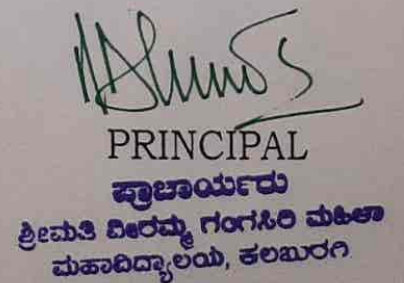 PRINCIPAL
ಪ್ರಾಚಾರ್ಯರು
ಶ್ರೀಮತಿ ವೀರಮ್ಮ ಗಂಗಸಿರಿ ಮಹಿಳಾ
ಮಹಾವಿದ್ಯಾಲಯ, ಕಲಬುರಗಿ